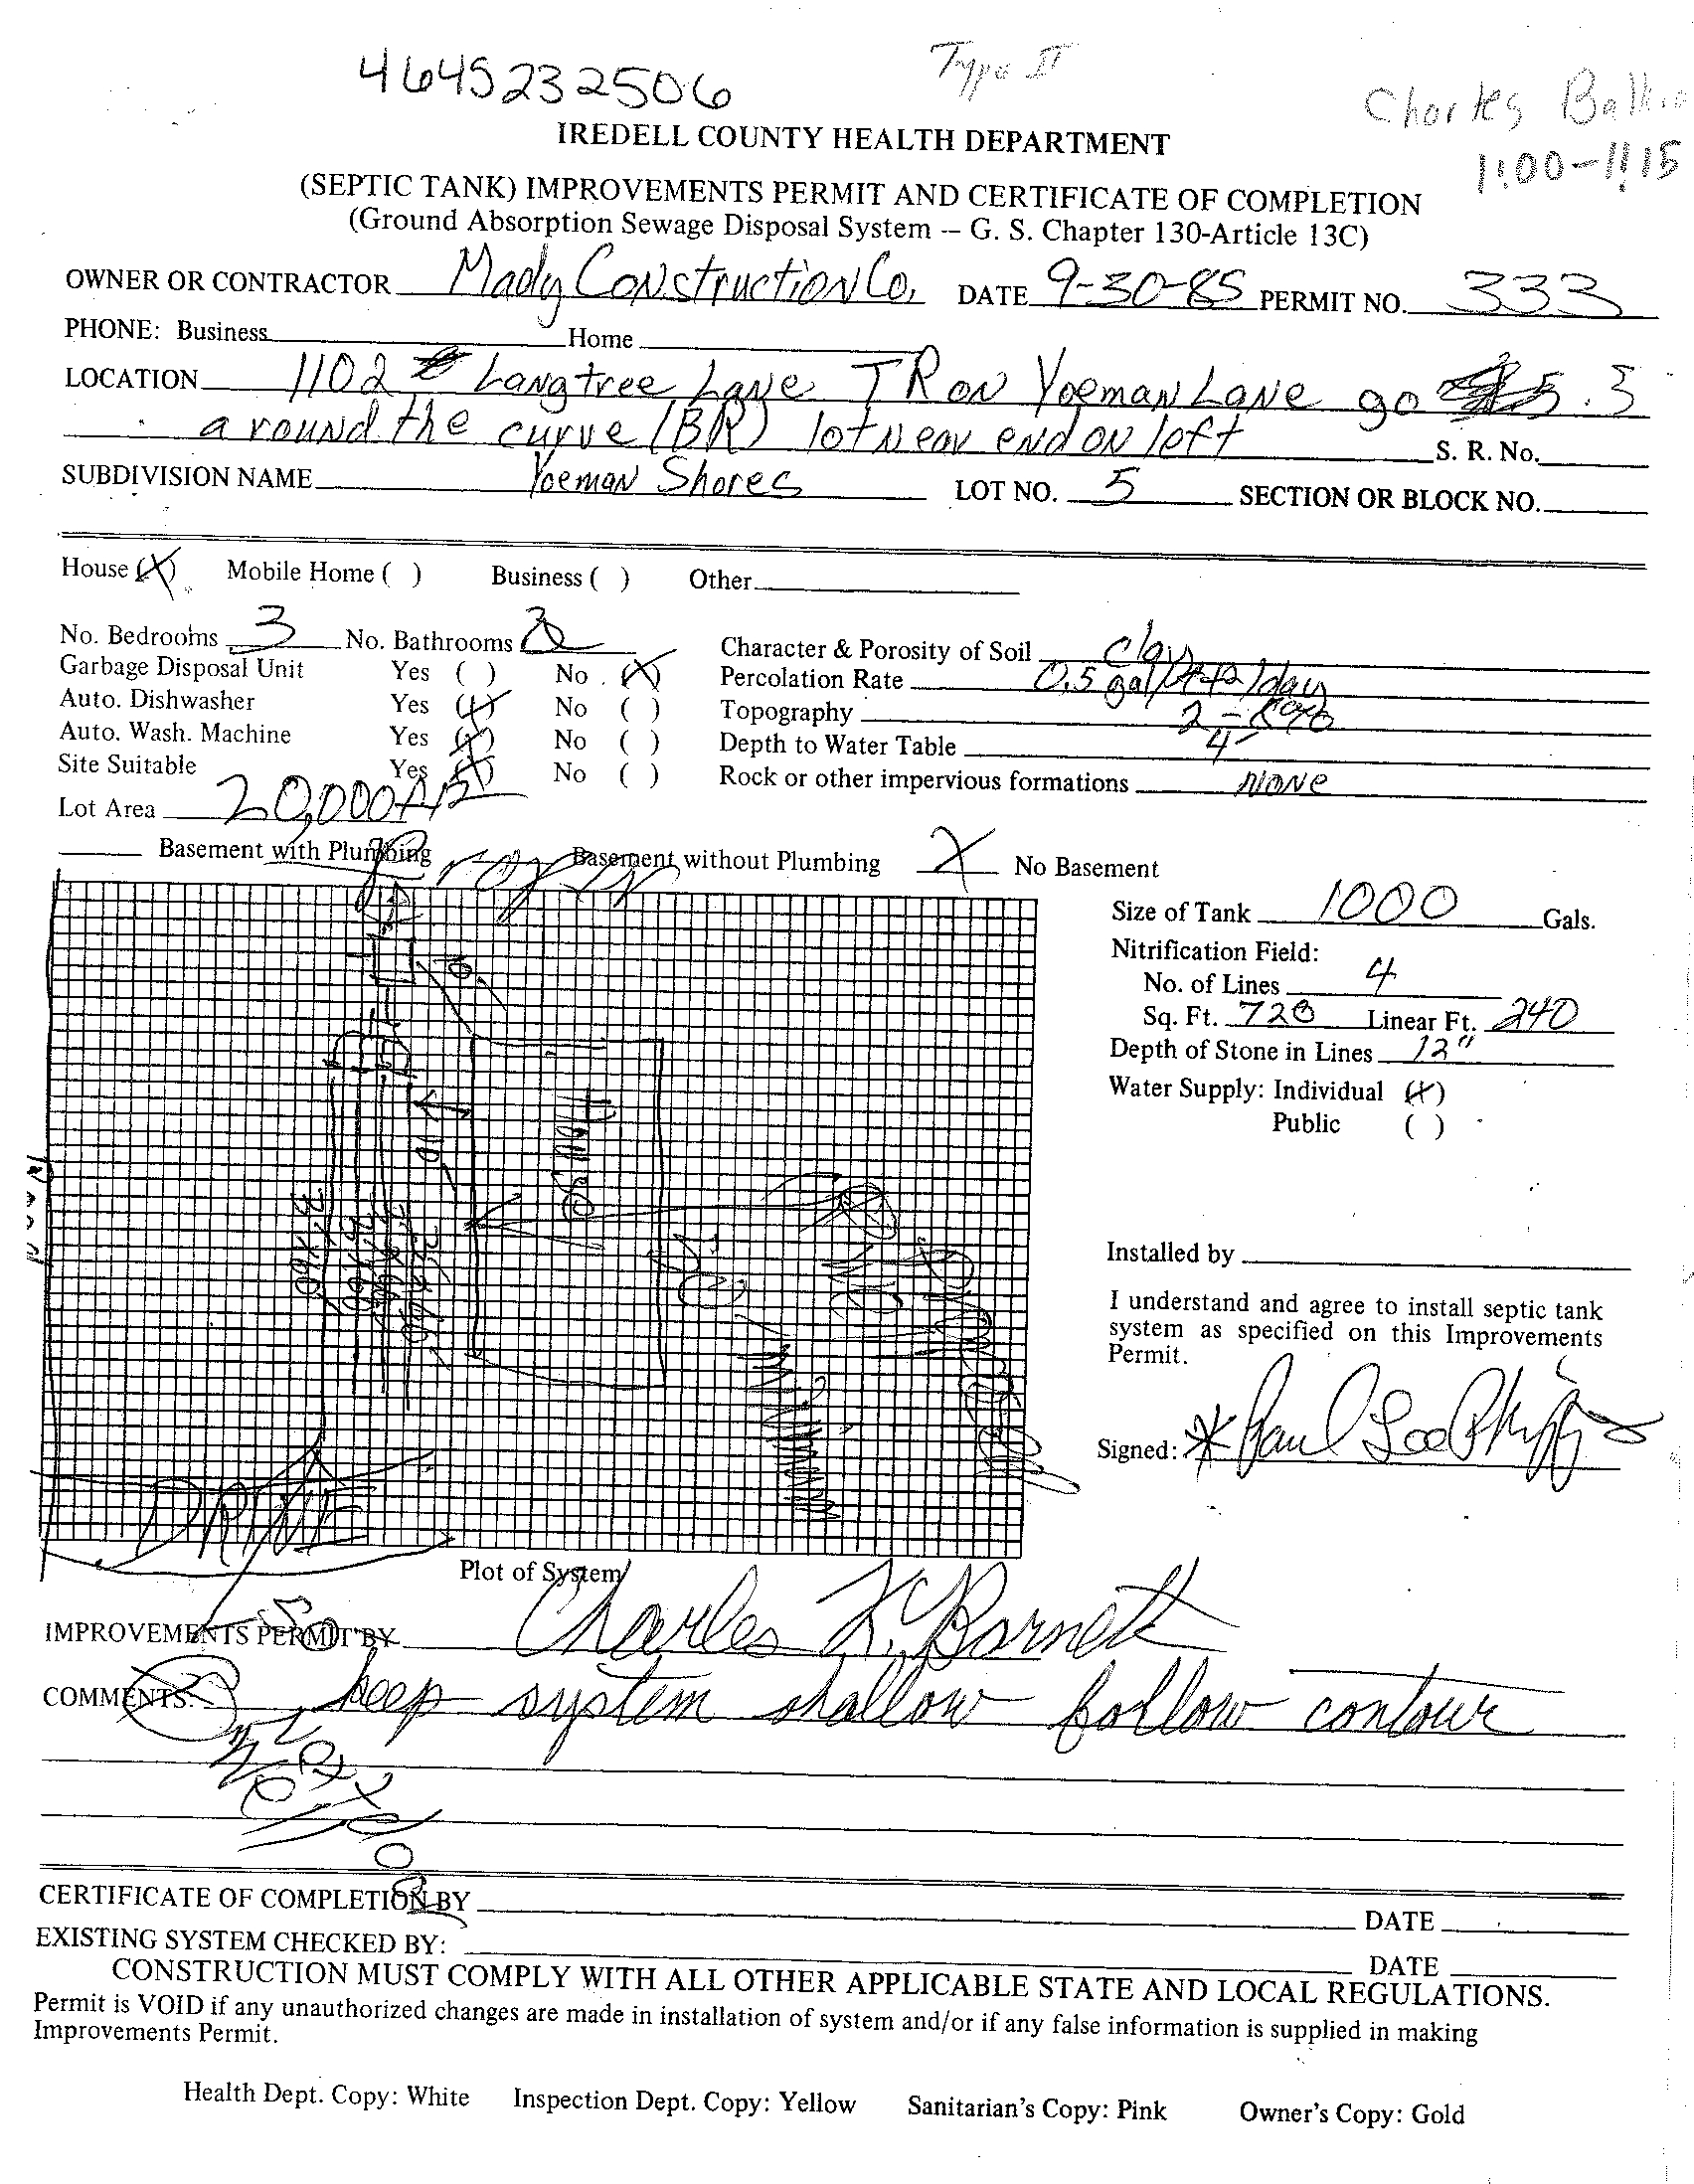 4645232506
Type II
Charles
11:00-11:15
IREDELL COUNTY HEALTH DEPARTMENT
(SEPTIC TANK) IMPROVEMENTS PERMIT AND CERTIFICATE OF COMPLETION
(Ground Absorption Sewage Disposal System – G. S. Chapter 130-Article 13C)
OWNER OR CONTRACTOR Mady Construction Co. DATE 9-30-85 PERMIT NO. 333
PHONE: Business Home
LOCATION 1102 Langtree Lane TR on Yoeman Lane go .3
around the curve (BR) lot near end on left S. R. No.
SUBDIVISION NAME Yoeman Shores LOT NO. 5 SECTION OR BLOCK NO.
House (X) Mobile Home ( ) Business ( ) Other
No. Bedrooms 3 No. Bathrooms 2 Character & Porosity of Soil clay
Garbage Disposal Unit Yes ( ) No (X) Percolation Rate 0.5 gal/ft2/day
Auto. Dishwasher Yes (X) No ( ) Topography 2-8%
Auto. Wash. Machine Yes (X) No ( ) Depth to Water Table 4'
Site Suitable Yes (X) No ( ) Rock or other impervious formations none
Lot Area 20,000 ft2
Basement with Plumbing Basement without Plumbing X No Basement
Size of Tank 1000 Gals.
Nitrification Field:
No. of Lines 4
Sq. Ft. 720 Linear Ft. 240
Depth of Stone in Lines 12"
Water Supply: Individual (X)
Public ( )
10'
10'
3'x60'
3'x60'
3'x60'
3'x60'
DRIVE
Installed by
I understand and agree to install septic tank
system as specified on this Improvements
Permit.
Signed: * Paul Lee Phipps
Plot of System
IMPROVEMENTS PERMIT BY Charles K. Barnett
COMMENTS: keep system shallow follow contour
CERTIFICATE OF COMPLETION BY DATE
EXISTING SYSTEM CHECKED BY: DATE
CONSTRUCTION MUST COMPLY WITH ALL OTHER APPLICABLE STATE AND LOCAL REGULATIONS.
Permit is VOID if any unauthorized changes are made in installation of system and/or if any false information is supplied in making
Improvements Permit.
Health Dept. Copy: White Inspection Dept. Copy: Yellow Sanitarian's Copy: Pink Owner's Copy: Gold